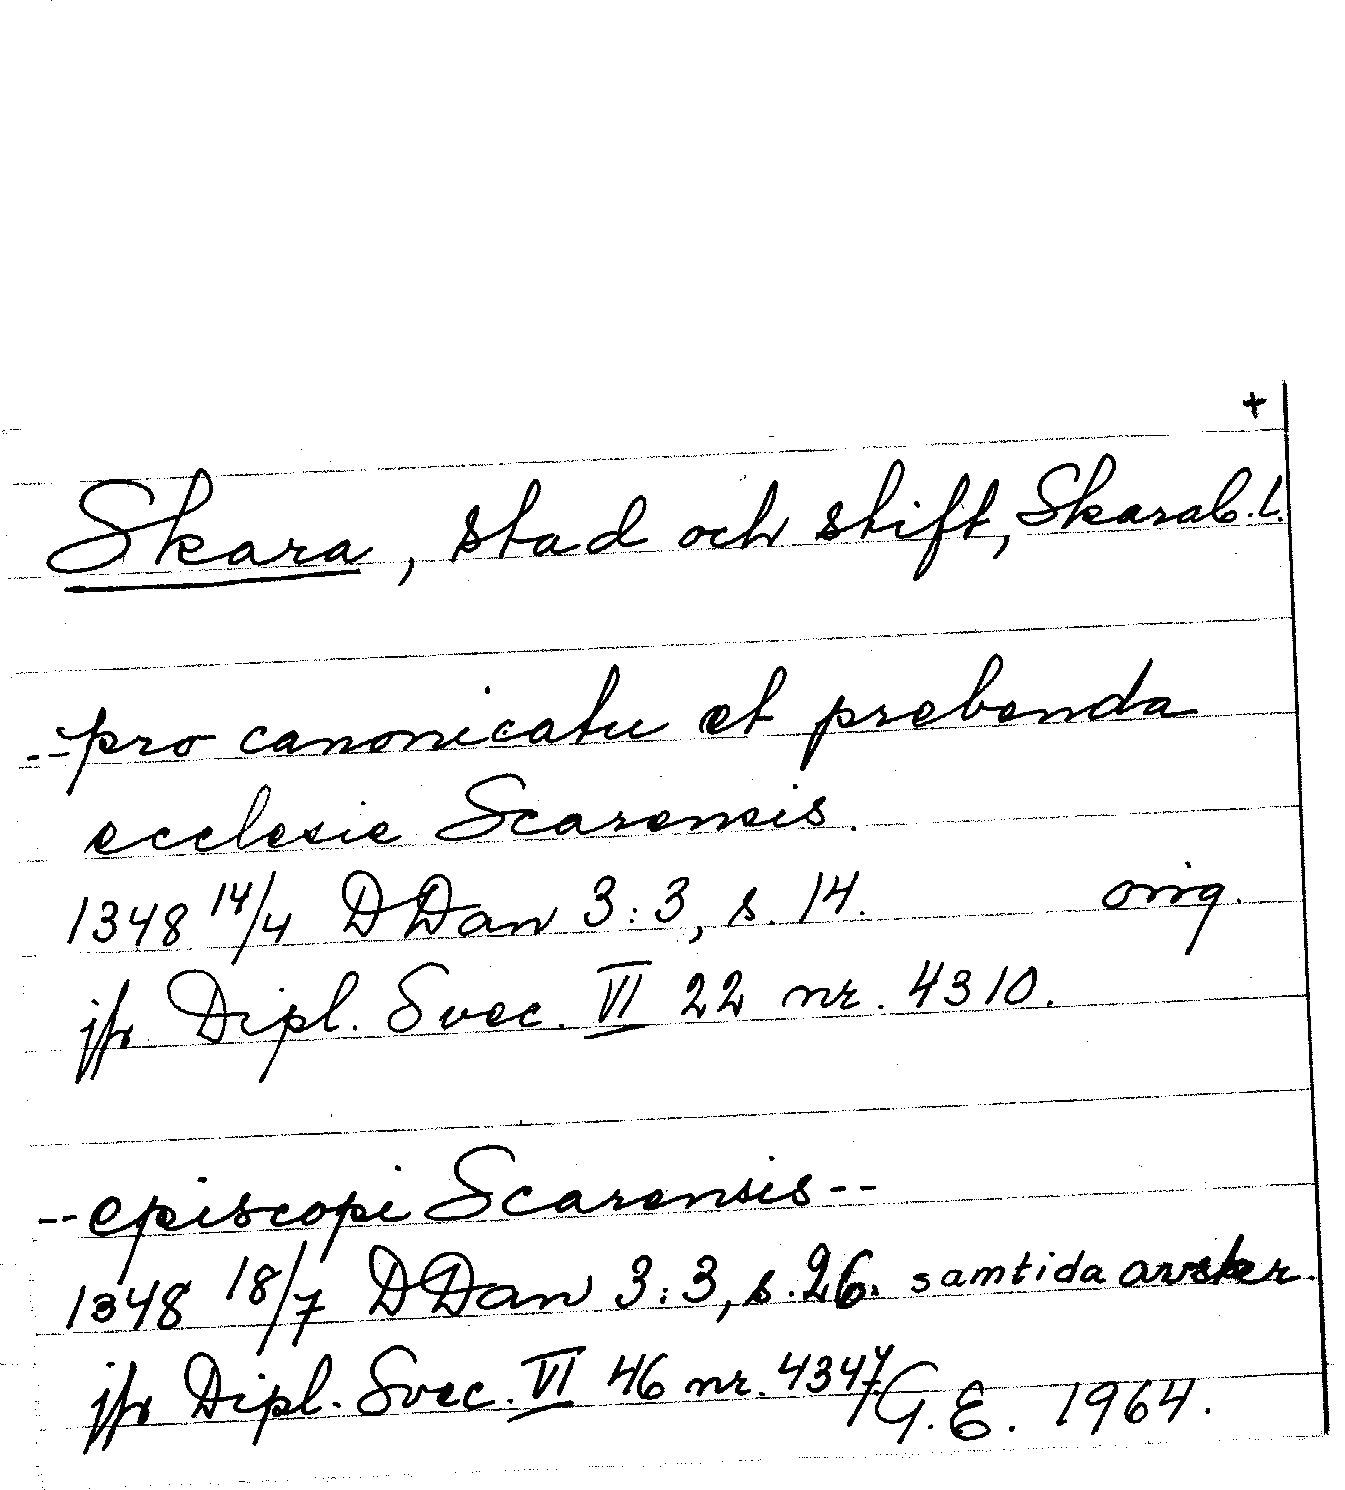 +
Skara, stad och stift, Skarab. l.
--pro canonicatu et prebenda
ecclesie Scarensis.
1348 14/4 DDan 3:3, s. 14. orig.
jfr Dipl. Svec. VI 22 nr. 4310.
--episcopi Scarensis--
1348 18/7 DDan 3:3, s. 26. samtida avskr.
jfr Dipl. Svec. VI 46 nr. 4347 G.E. 1964.